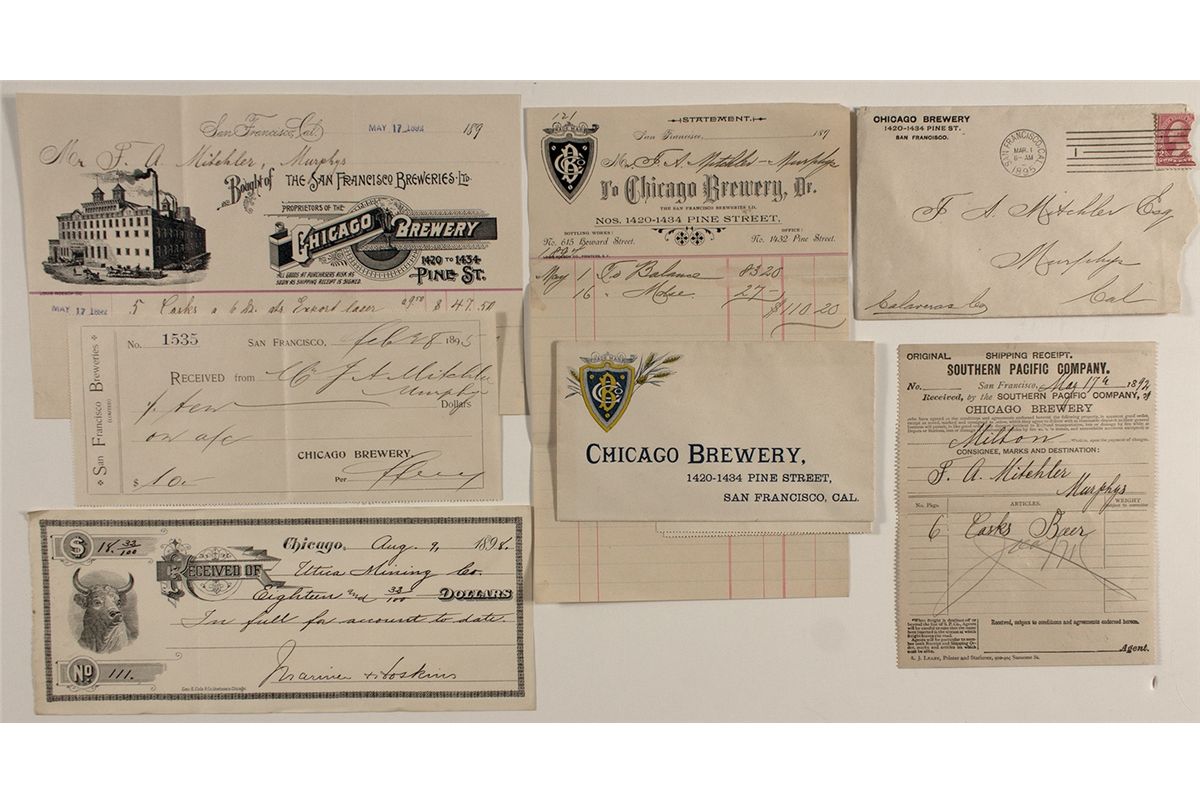 San Francisco, Cal. MAY 17 1892 189
Mr F. A. Mitchler, Murphys
Bought of THE SAN FRANCISCO BREWERIES, LTD.
PROPRIETORS OF THE
CHICAGO BREWERY
1420 TO 1434
PINE ST.
ALL GOODS AT PURCHASERS RISK AS
SOON AS SHIPPING RECEIPT IS SIGNED.
MAY 17 1892 5 Casks a 6 Dz. qts Export lager 9.50 $ 47.50
San Francisco Breweries
(LIMITED)
No. 1535 SAN FRANCISCO, Feb 28 1895
RECEIVED from Mr F A Mitchler
Murphys
Ten Dollars
on a/c
CHICAGO BREWERY,
$ 10.- Per
$ 18. 33/100
Chicago, Aug. 9, 1898.
RECEIVED OF Utica Mining Co.
Eighteen and 33/100 DOLLARS
In full for amount to date.
NO 111.
Mariner & Hoskins
121
STATEMENT.
TRADE MARK
San Francisco, 189
Mr. F A Mitchler - Murphys
To Chicago Brewery, Dr.
THE SAN FRANCISCO BREWERIES LD.
NOS. 1420-1434 PINE STREET,
BOTTLING WORKS: OFFICE:
No. 615 Howard Street. No. 1432 Pine Street.
May 1 To Balance 83 20
16 " Mdse. 27 -
$110.20
TRADE MARK
CHICAGO BREWERY,
1420-1434 PINE STREET,
SAN FRANCISCO, CAL.
CHICAGO BREWERY
1420-1434 PINE ST.
SAN FRANCISCO.
SAN FRANCISCO, CAL.
MAR. 1
6-AM
1895
1
F. A. Mitchler Esq.
Murphys
Calaveras Co Cal
ORIGINAL. SHIPPING RECEIPT.
SOUTHERN PACIFIC COMPANY.
No. San Francisco, May 17th 1892
Received, by the SOUTHERN PACIFIC COMPANY, of
CHICAGO BREWERY
Milton
CONSIGNEE, MARKS AND DESTINATION:
F. A. Mitchler
Murphys
No. Pkgs. ARTICLES. WEIGHT
6 Casks Beer
Received, subject to conditions and agreements endorsed hereon.
Agent.